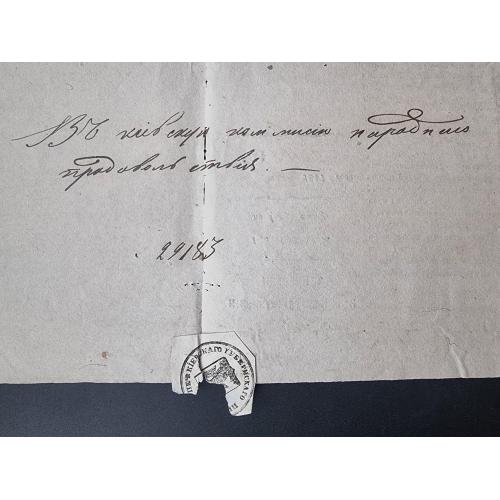 Въ кіевскую коммисію народнаго
продовольствія. —
29183
КІЕВСКАГО ГУБЕРНСКАГО